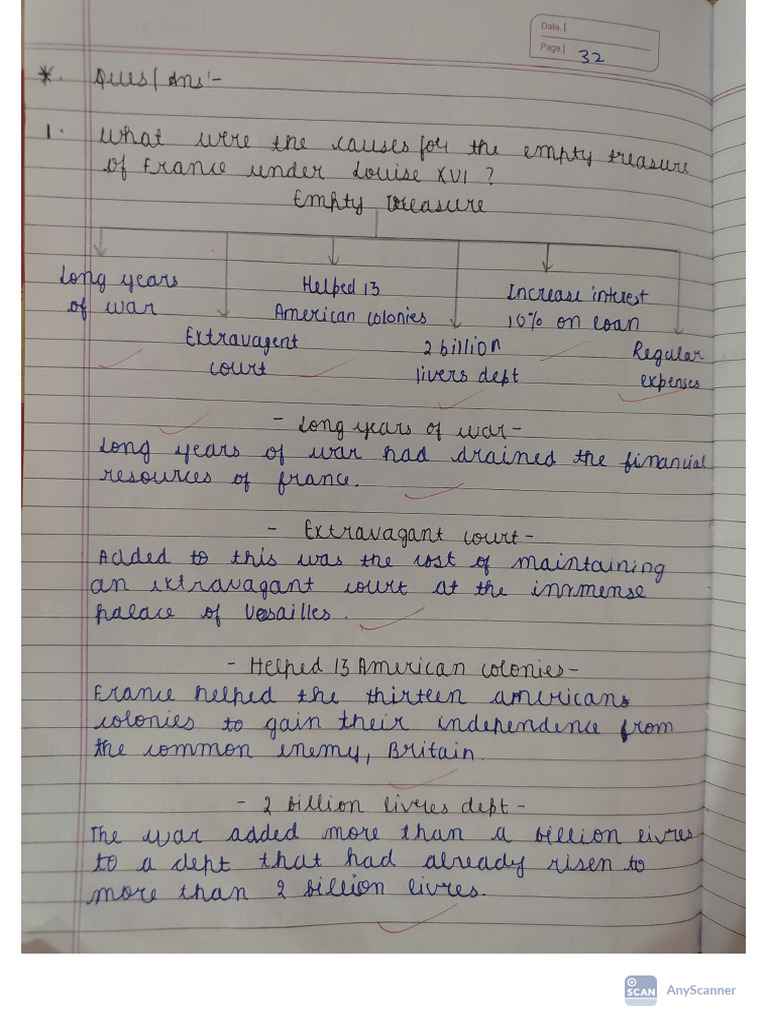 Date.
Page. 32
*. Ques/Ans:-
1. What were the causes for the empty treasure
of France under Louise XVI ?
Empty treasure
Long years
of war
Helped 13
American colonies
Increase interest
10% on loan
Extravagent
court
2 billion
livers dept
Regular
expenses
- Long years of war-
Long years of war had drained the financial
resources of france.
- Extravagant court-
Added to this was the cost of maintaining
an extravagant court at the immense
palace of Vesailles.
- Helped 13 American colonies-
France helped the thirteen americans
colonies to gain their independence from
the common enemy, Britain.
- 2 billion livres dept-
The war added more than a billion livres
to a dept that had already risen to
more than 2 billion livres.
SCAN AnyScanner